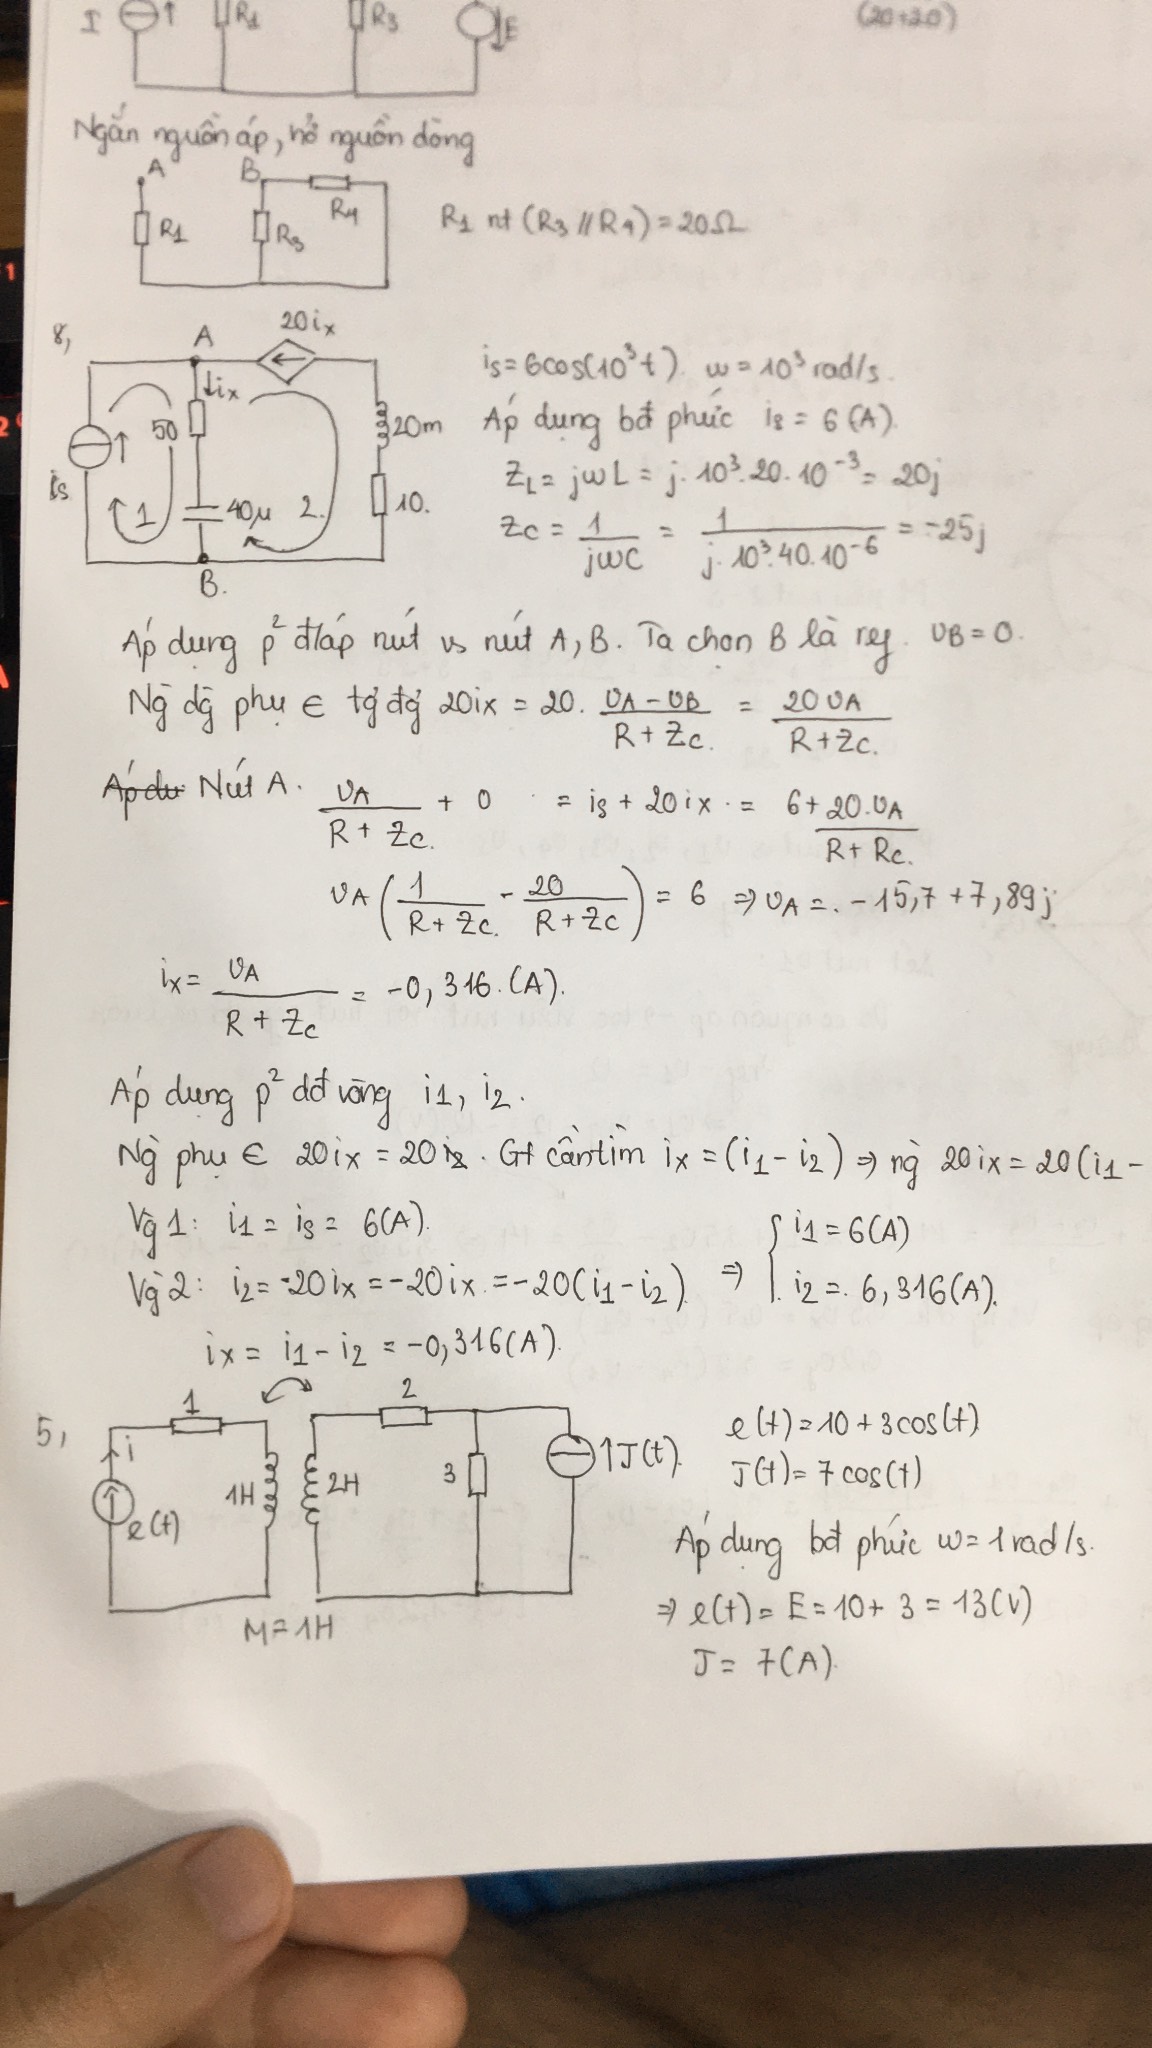 I R1 R3 E (20+20)
Ngắn nguồn áp, hở nguồn dòng
A B R4
R1 R3 R1 nt (R3 // R4) = 20Ω
8, A 20ix
ix is = 6cos(10³t). w = 10³ rad/s.
50 20m Áp dụng bđ phức is = 6 (A).
is ZL = jwL = j. 10³. 20. 10⁻³ = 20j
1 40µ 2. 10. Zc = 1/jwC = 1/j. 10³. 40. 10⁻⁶ = -25j
B.
Áp dụng p² đ/áp nút vs nút A, B. Ta chọn B là ref. UB = 0.
Ng dg phụ ∈ tg đg 20ix = 20. UA - UB/R + Zc. = 20 UA/R + Zc.
Áp du Nút A. UA/R + Zc. + 0 = is + 20ix = 6 + 20. UA/R + Rc.
UA (1/R + Zc. - 20/R + Zc) = 6 => UA = . -15,7 + 7,89j
ix = UA/R + Zc = -0,316. (A).
Áp dụng p² dđ vòng i1, i2.
Ng phụ ∈ 20ix = 20ix. Gt cần tìm ix = (i1 - i2) => ng 20ix = 20(i1 -
Vg 1: i1 = is = 6(A). { i1 = 6(A)
Vg 2: i2 = -20ix = -20ix = -20(i1 - i2) => i2 = . 6,316(A).
ix = i1 - i2 = -0,316(A).
5, 1 2 e(t) = 10 + 3cos(t)
i 1H 2H 3 J(t). J(t) = 7cos(t)
e(t) Áp dụng bđ phức w = 1 rad/s.
M = 1H => e(t) = E = 10 + 3 = 13(V)
J = 7(A).